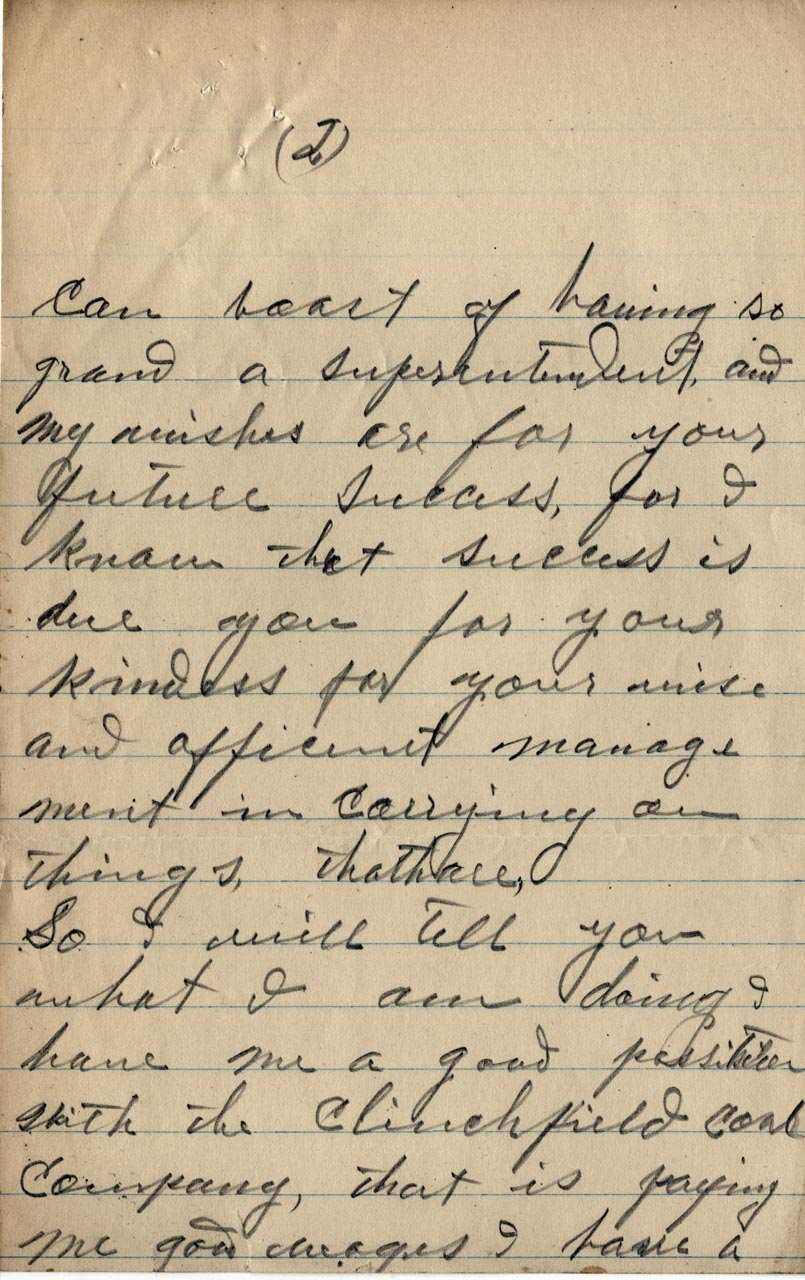 (2)
can boast of having so
grand a superentendent, and
my wishes are for your
future success, for I
know that success is
due you for your
kindess for your wise
and efficent manage
ment in carrying on
things,
So I will tell you
what I am doing I
have me a good
with the Clinchfield coal
Company, that is paying
me good wages I have a